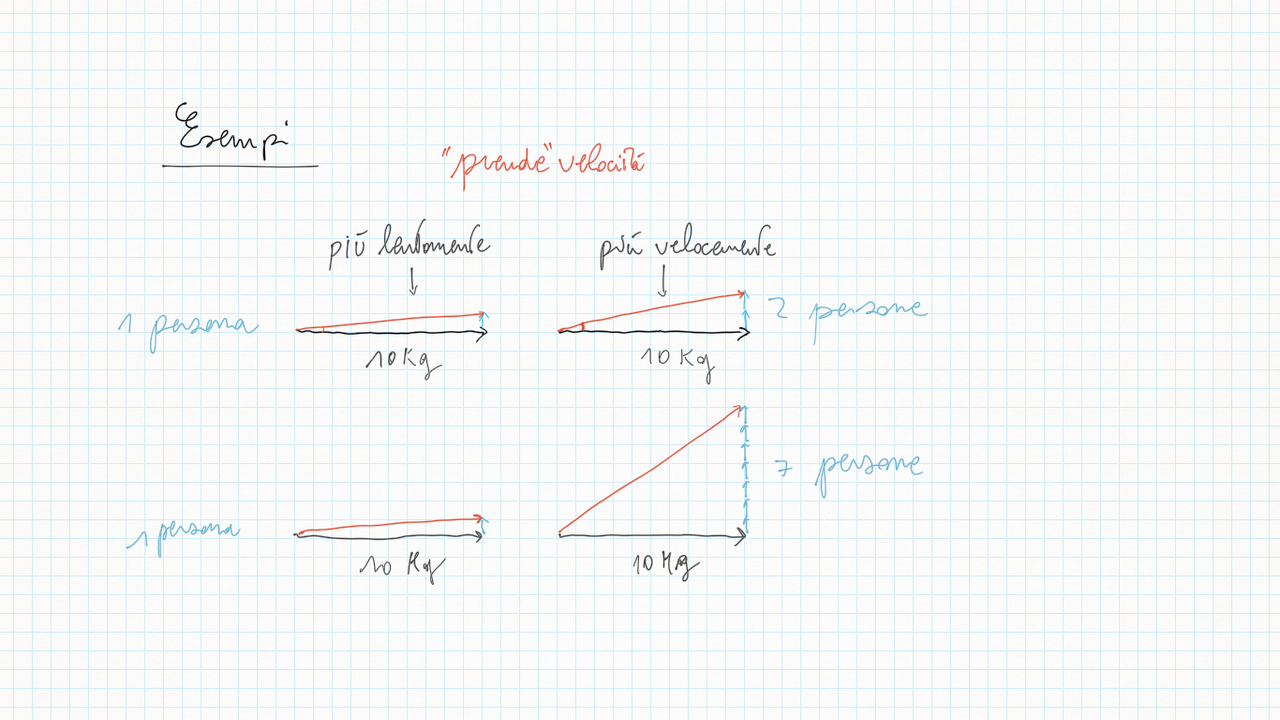 Esempi
"prende" velocità
più lentamente
più velocemente
1 persona
2 persone
10 Kg
10 Kg
7 persone
1 persona
10 Kg
10 Kg